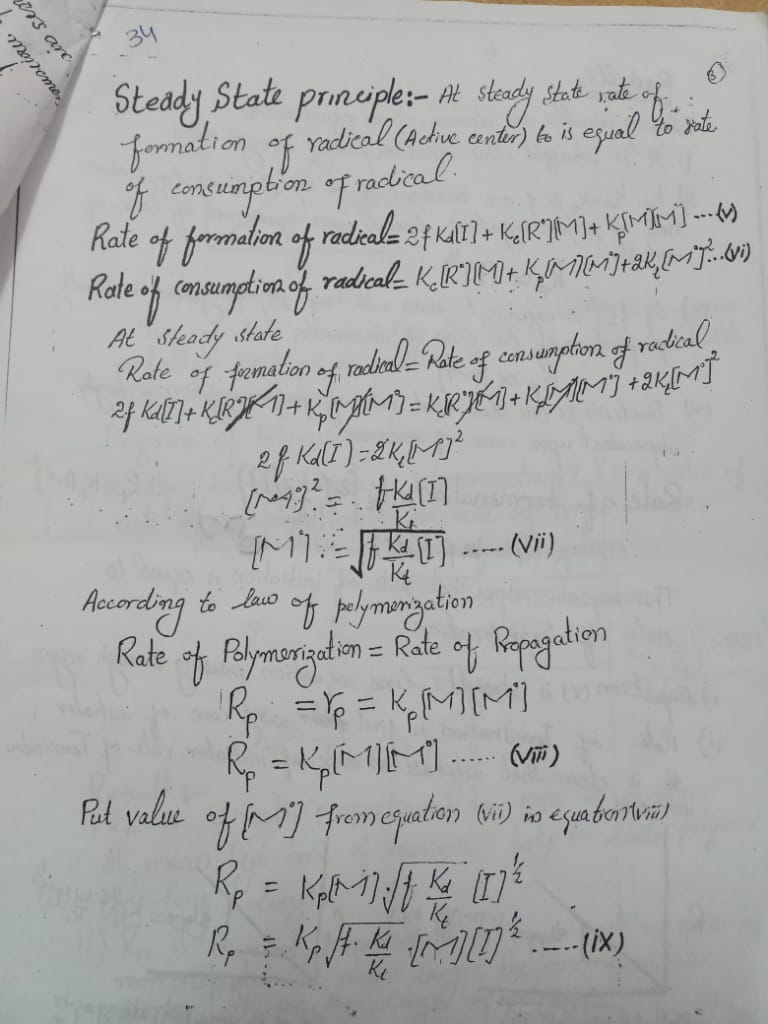 34
③
Steady State principle:- At steady state rate of
formation of radical (Active center) to is equal to rate
of consumption of radical.
Rate of formation of radical= 2f Kd[I] + Kc[R°][M] + Kp[M][M°] ---(v)
Rate of consumption of radical= Kc[R°][M] + Kp[M][M°] + 2Kt[M°]²...(vi)
At steady state
Rate of formation of radical = Rate of consumption of radical
2f Kd[I] + Kc[R°][M] + Kp[M][M°] = Kc[R°][M] + Kp[M][M°] + 2Kt[M°]²
2f Kd[I] = 2Kt[M°]²
[M°]² = fKd[I] / Kt
[M°] = √(f Kd/Kt [I]) ..... (vii)
According to law of polymerization
Rate of Polymerization = Rate of Propagation
Rp = rp = Kp[M][M°]
Rp = Kp[M][M°] ...... (viii)
Put value of [M°] from equation (vii) in equation (viii)
Rp = Kp[M].√(f Kd/Kt) [I]^½
Rp = Kp √(f. Kd/Kt) .[M][I]^½ .....(ix)